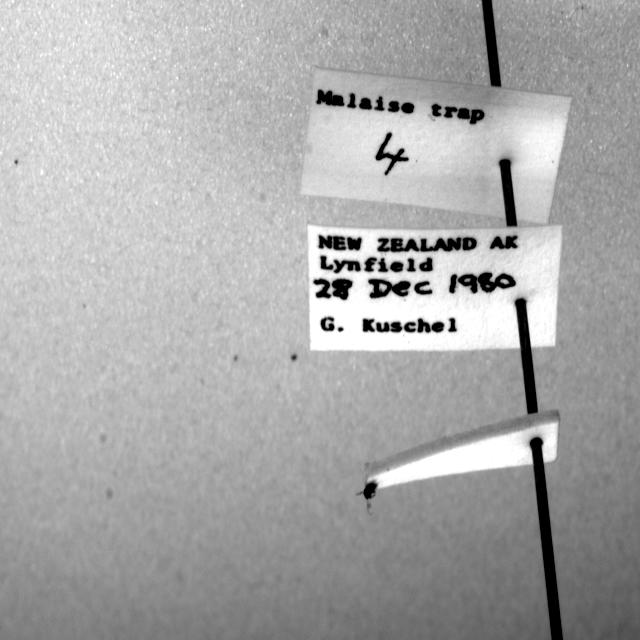 Malaise trap
4
NEW ZEALAND AK
Lynfield
28 Dec 1980
G. Kuschel